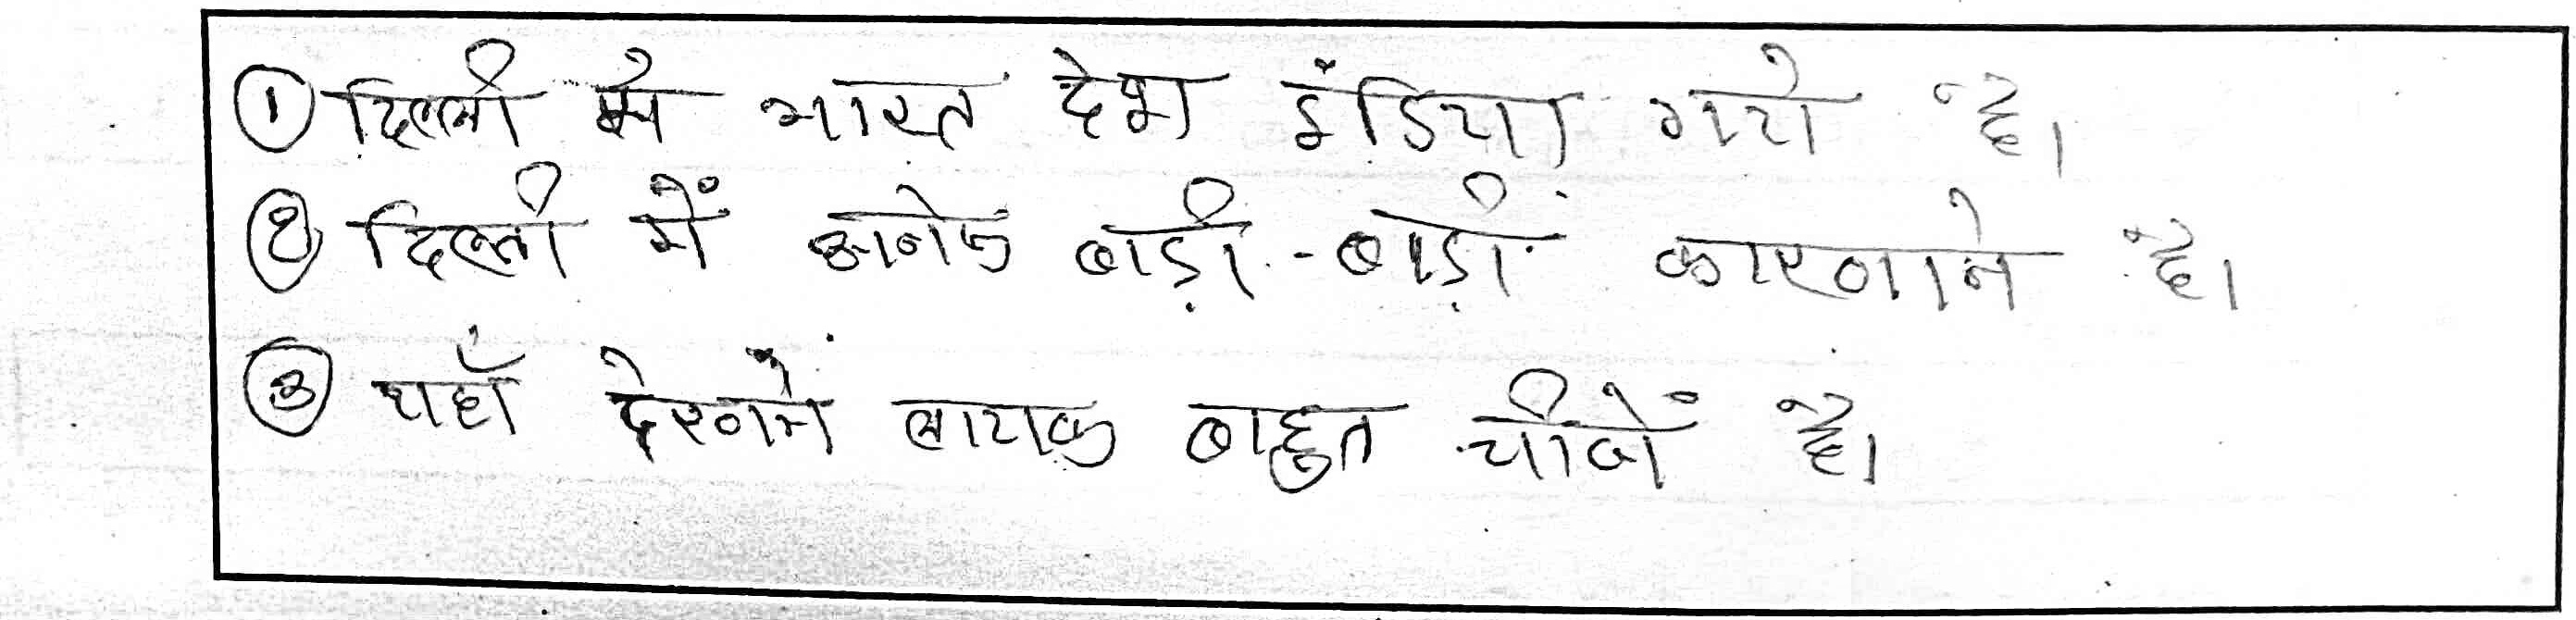 ① दिल्ली मे भारत देश इंडिया गये है।
② दिल्ली में अनेक बाड़ी-बाड़ी कारखाने है।
③ यहाँ देखने लायक बाहुत चीजें है।